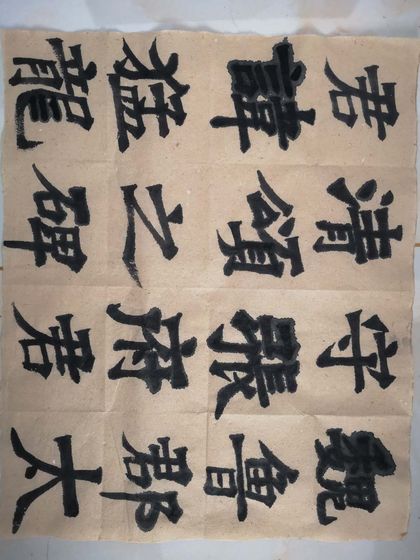 魏魯郡太
守張府君
清頌之碑
君諱猛龍